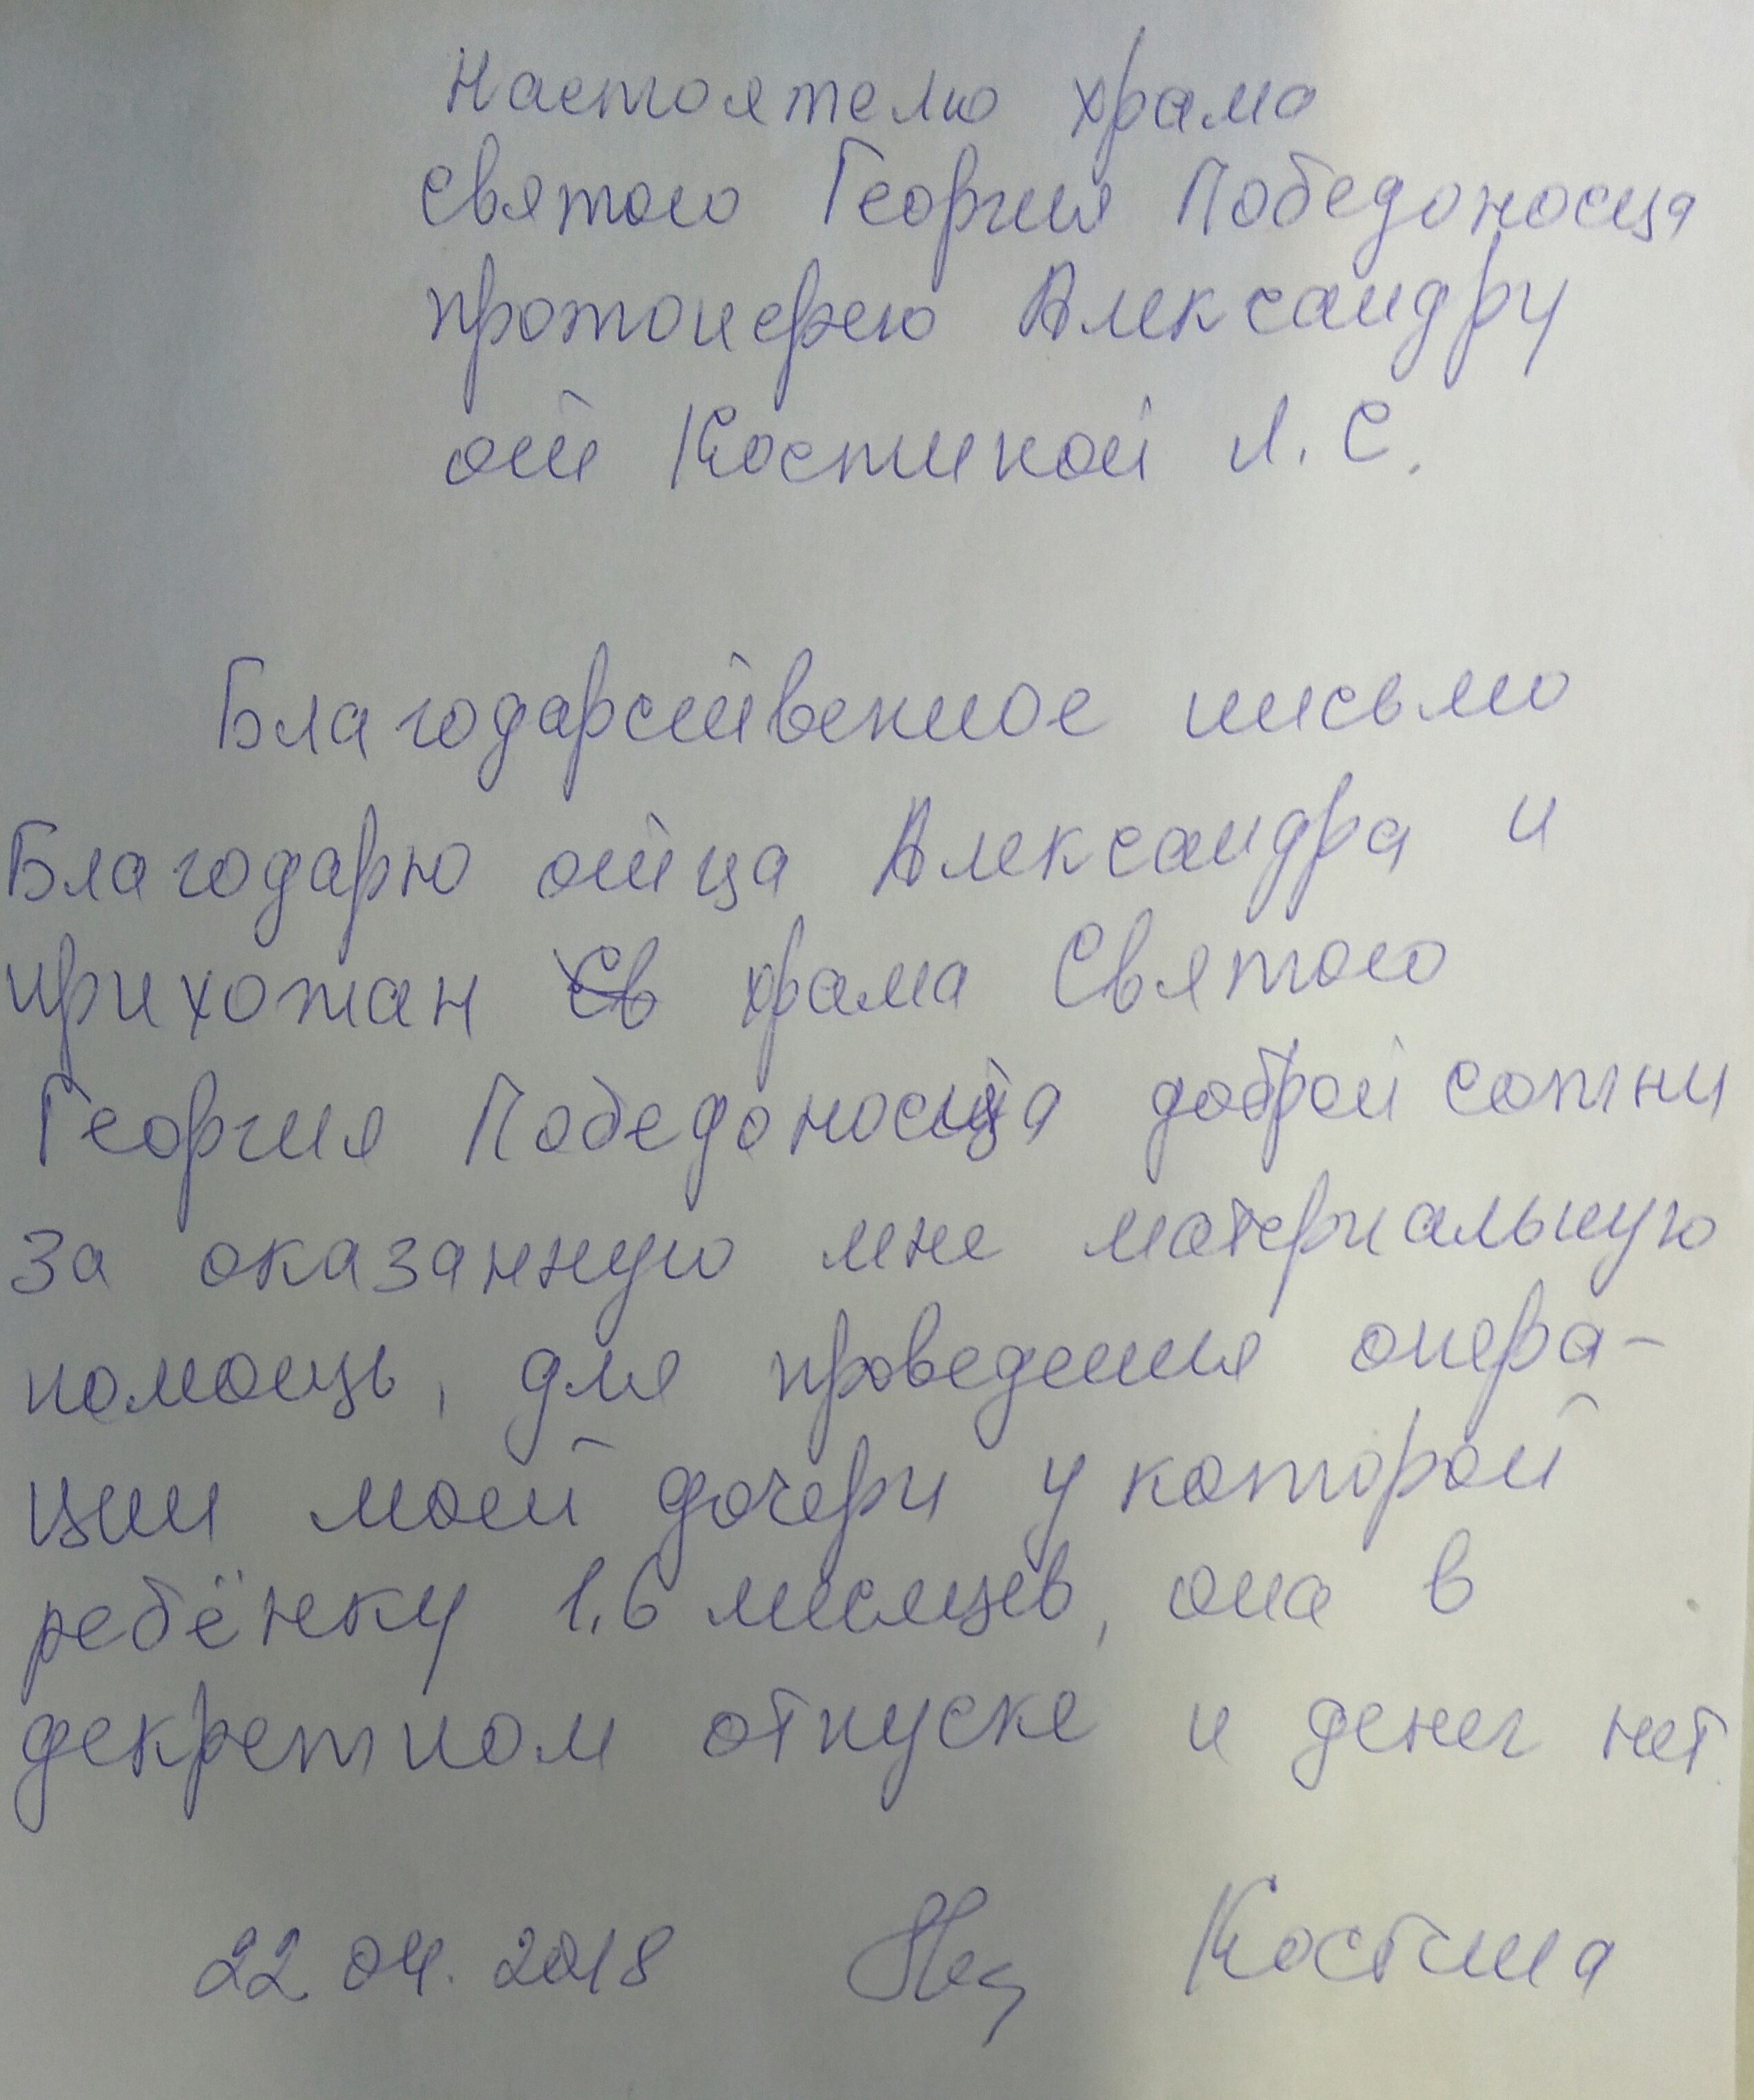 Настоятелю храма
святого Георгия Победоносца
протоиерею Александру
от Костиной Л.С.
Благодарственное письмо
Благодарю отца Александра и
прихожан храма Святого
Георгия Победоносца доброй сотни
за оказанную мне материальную
помощь, для проведения опера-
ции моей дочери у которой
ребёнку 1,6 месяцев, она в
декретном отпуске и денег нет.
22 04. 2018 Костина